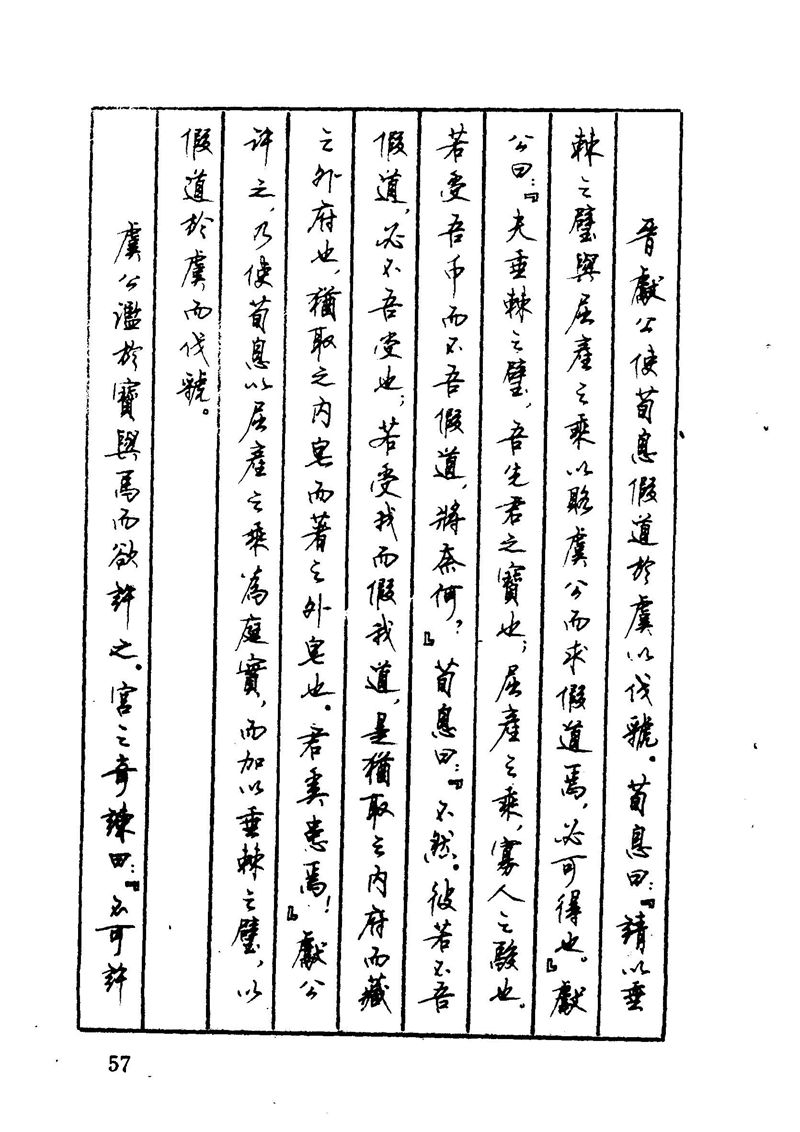 晉獻公使荀息假道於虞以伐虢。荀息曰：『請以垂
棘之璧與屈產之乘以賂虞公而求假道焉，必可得也。』獻
公曰：『夫垂棘之璧，吾先君之寶也；屈產之乘，寡人之駿也。
若受吾币而不吾假道，將奈何？』荀息曰：『不然。彼若不吾
假道，必不吾受也；若受我而假我道，是猶取之內府而藏
之外府也，猶取之內皂而著之外皂也。君奚患焉！』獻公
許之，乃使荀息以屈產之乘為庭實，而加以垂棘之璧，以
假道於虞而伐虢。
虞公濫於寶與馬而欲許之。宮之奇諫曰：『不可許
57